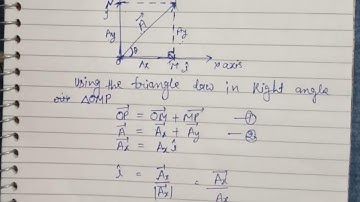 N
ĵ
A⃗
Ay
Ay
θ
O
Ax
M
î
x axis
Using the triangle law in Right angle
ΔOMP
O⃗P = O⃗M + M⃗P — ①
A⃗ = A⃗x + Ay — ②
A⃗x = Ax î
î = A⃗x / |A⃗x| = A⃗x / Ax